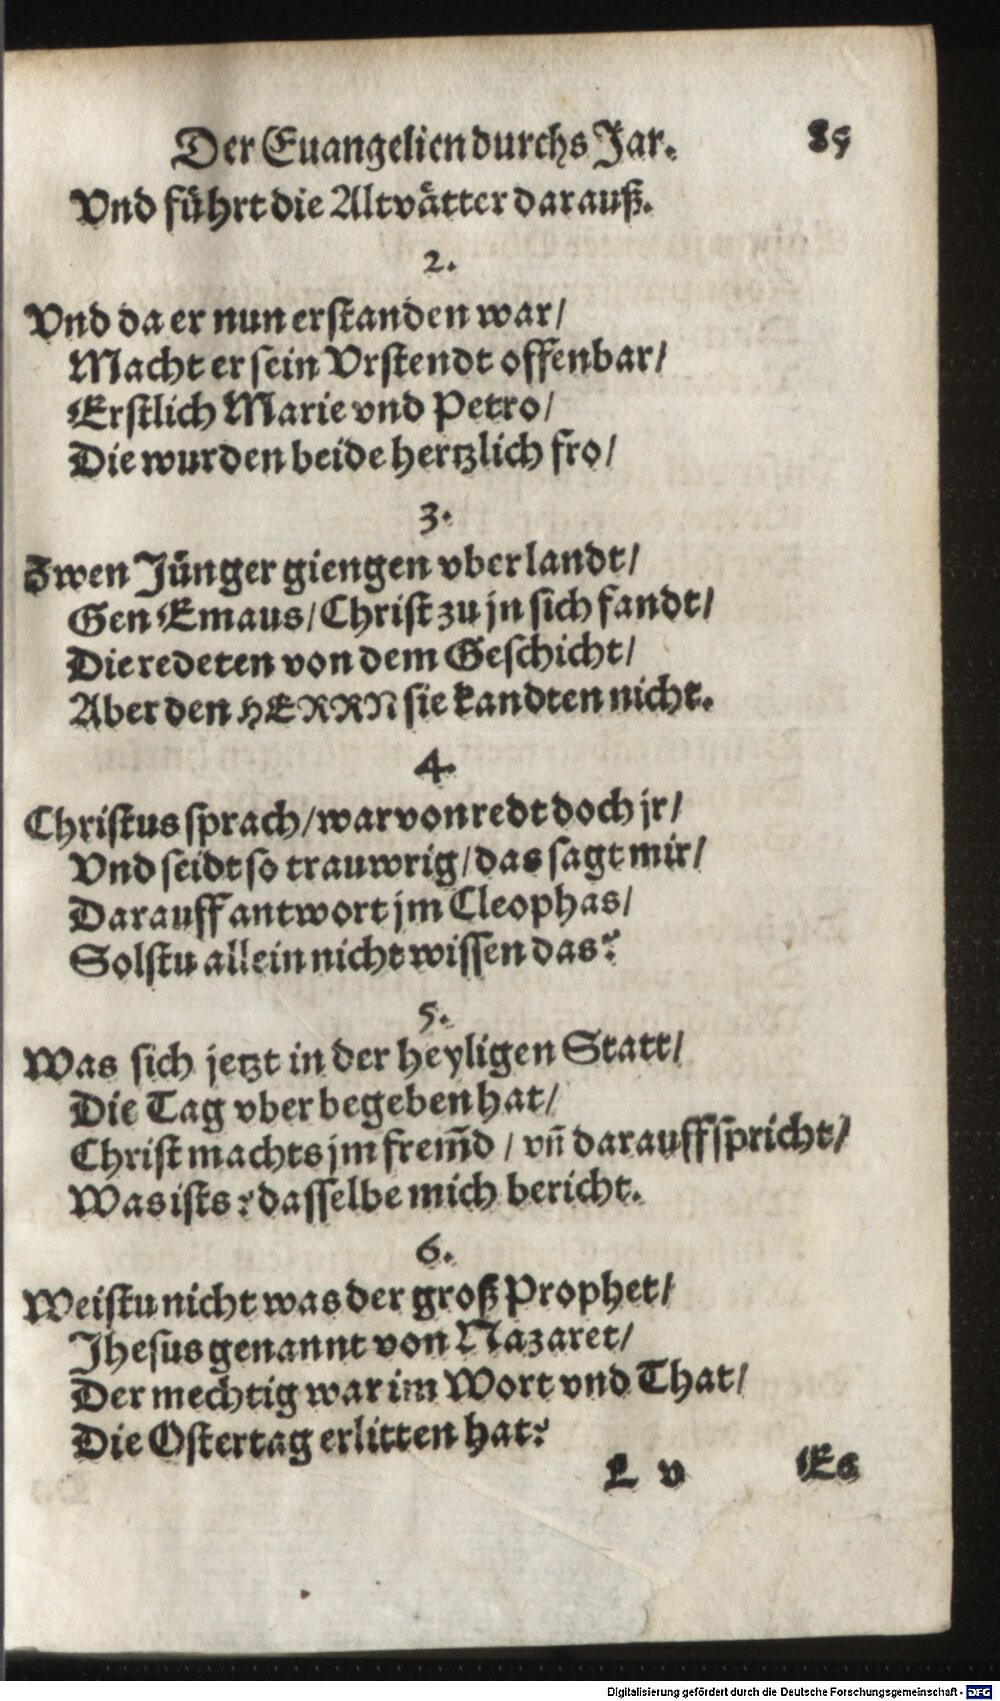 Der Euangelien durchs Jar. 85
Vnd führt die Altvätter darauß.
2.
Vnd da er nun erstanden war/
Macht er sein Vrstendt offenbar/
Erstlich Marie vnd Petro/
Die wurden beide hertzlich fro/
3.
Zwen Jünger giengen vber landt/
Gen Emaus/ Christ zu jn sich fandt/
Die redeten von dem Geschicht/
Aber den HERRN sie kandten nicht.
4.
Christus sprach/ war von redt doch jr/
Vnd seidt so trauwrig/ das sagt mir/
Darauff antwort jm Cleophas/
Solstu allein nicht wissen das?
5.
Was sich jetzt in der heyligen Statt/
Die Tag vber begeben hat/
Christ machts jm frem̄d / vn̄ darauff spricht/
Was ists? dasselbe mich bericht.
6.
Weistu nicht was der groß Prophet/
Jhesus genannt von Nazaret/
Der mechtig war im Wort vnd That/
Die Ostertag erlitten hat?
L v Es
Digitalisierung gefördert durch die Deutsche Forschungsgemeinschaft - DFG